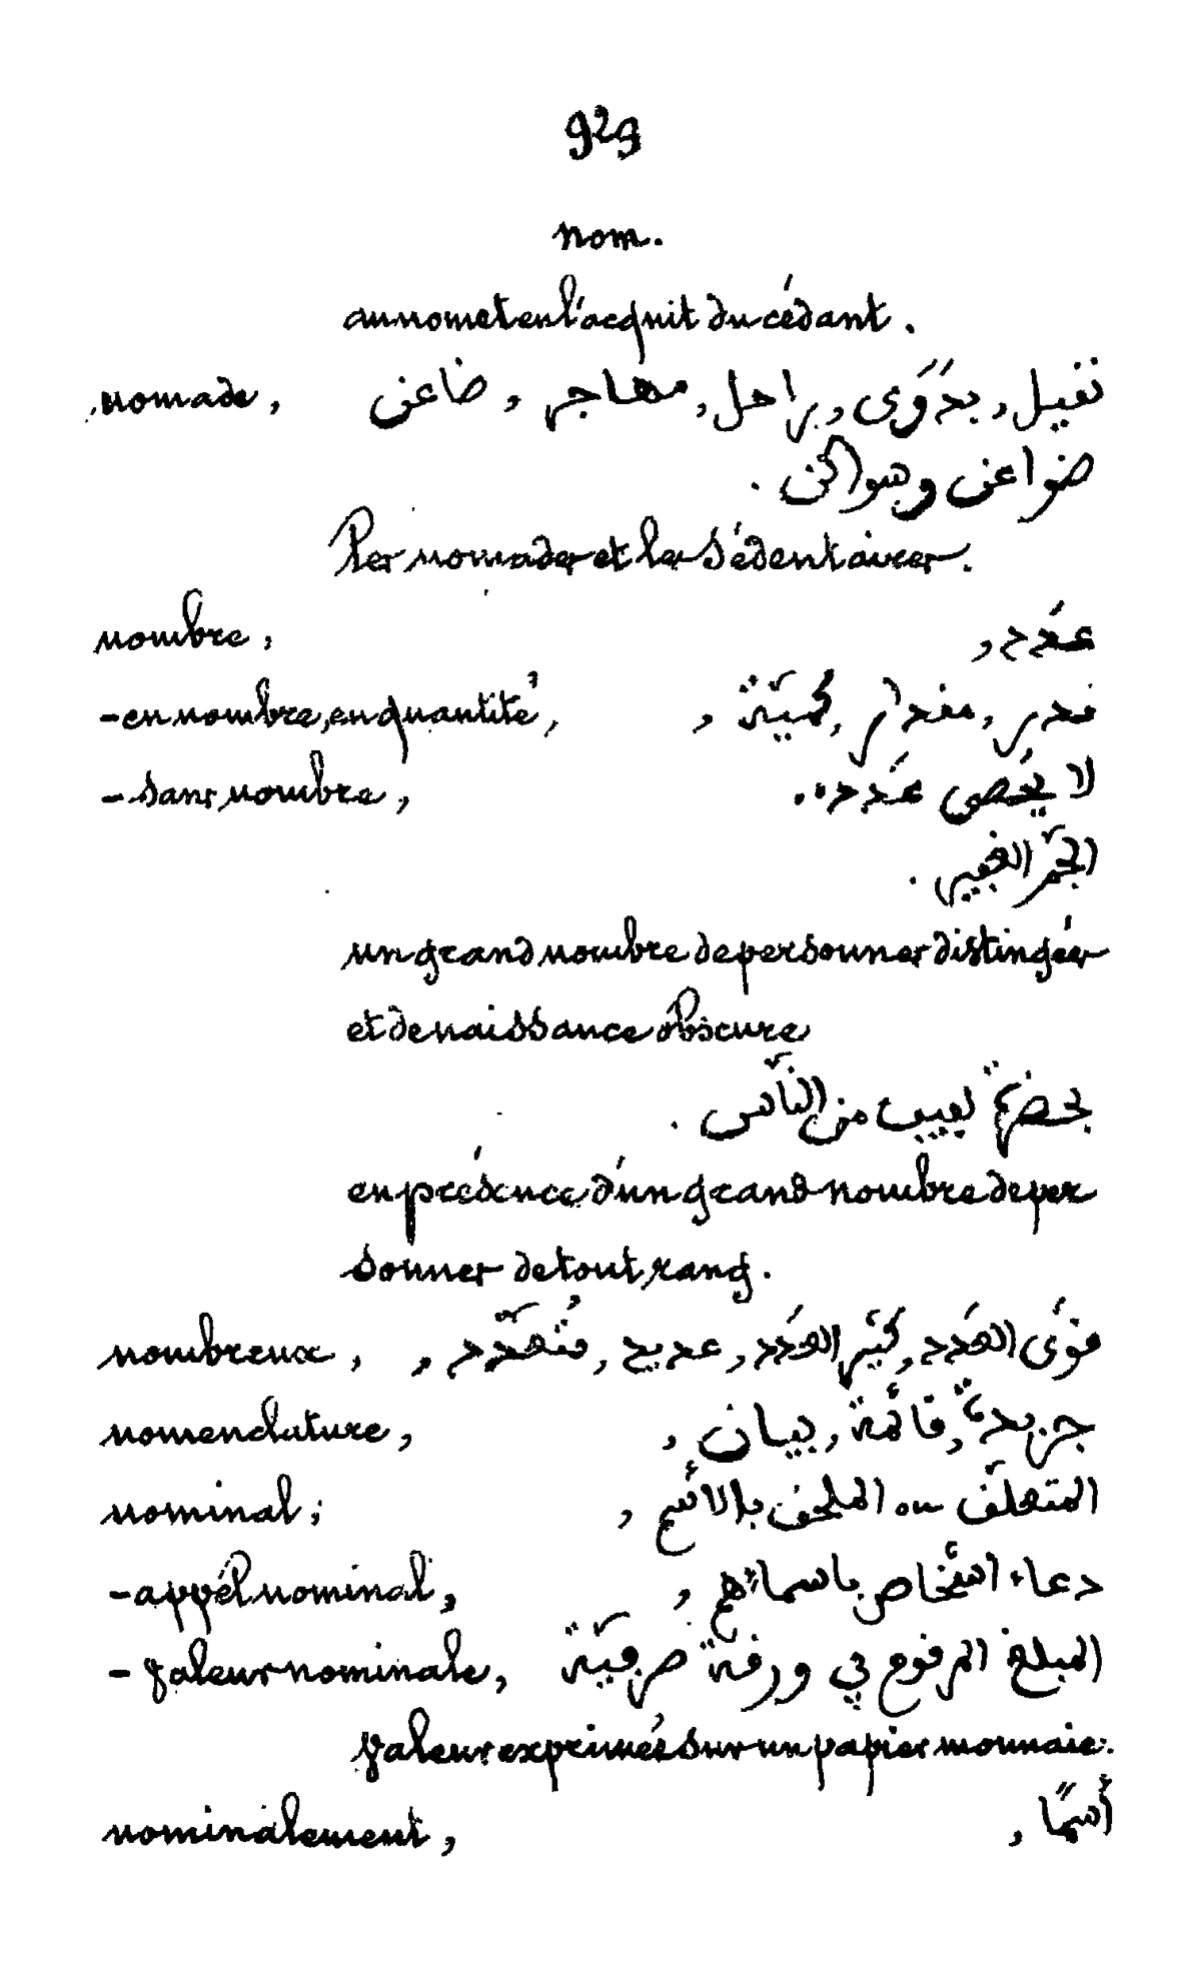 929
nom.
au nom et en l'acquit du cédant.
nomade, نفيل, بدَوَى, راحل, مهاجر, ضاعن
ضواعن وسواكن.
Les nomades et les sédentaires.
nombre, عَدد,
- en nombre, en quantité, قدر, مقدار, كميّة,
- sans nombre, لا يُحصى عَدده.
الجمّ الغفير.
un grand nombre de personnes distingées
et de naissance obscure
بحضرة لفيف من النّاس.
en présence d'un grand nombre de per
sonnes de tout rang.
nombreux, قوَى العَدد, كثير العَدد, عديد, مُتعدّد,
nomenclature, جريدة, قائمة, بيان,
nominal; المتعلّق ou الملحق بالأسم,
- appél nominal, دعاء اشخاص باسمائهم,
- valeur nominale, المبلغ المرقوم في ورقة صرفيّة
valeur exprimés sur un papier monnaie.
nominalement, أسمًا,